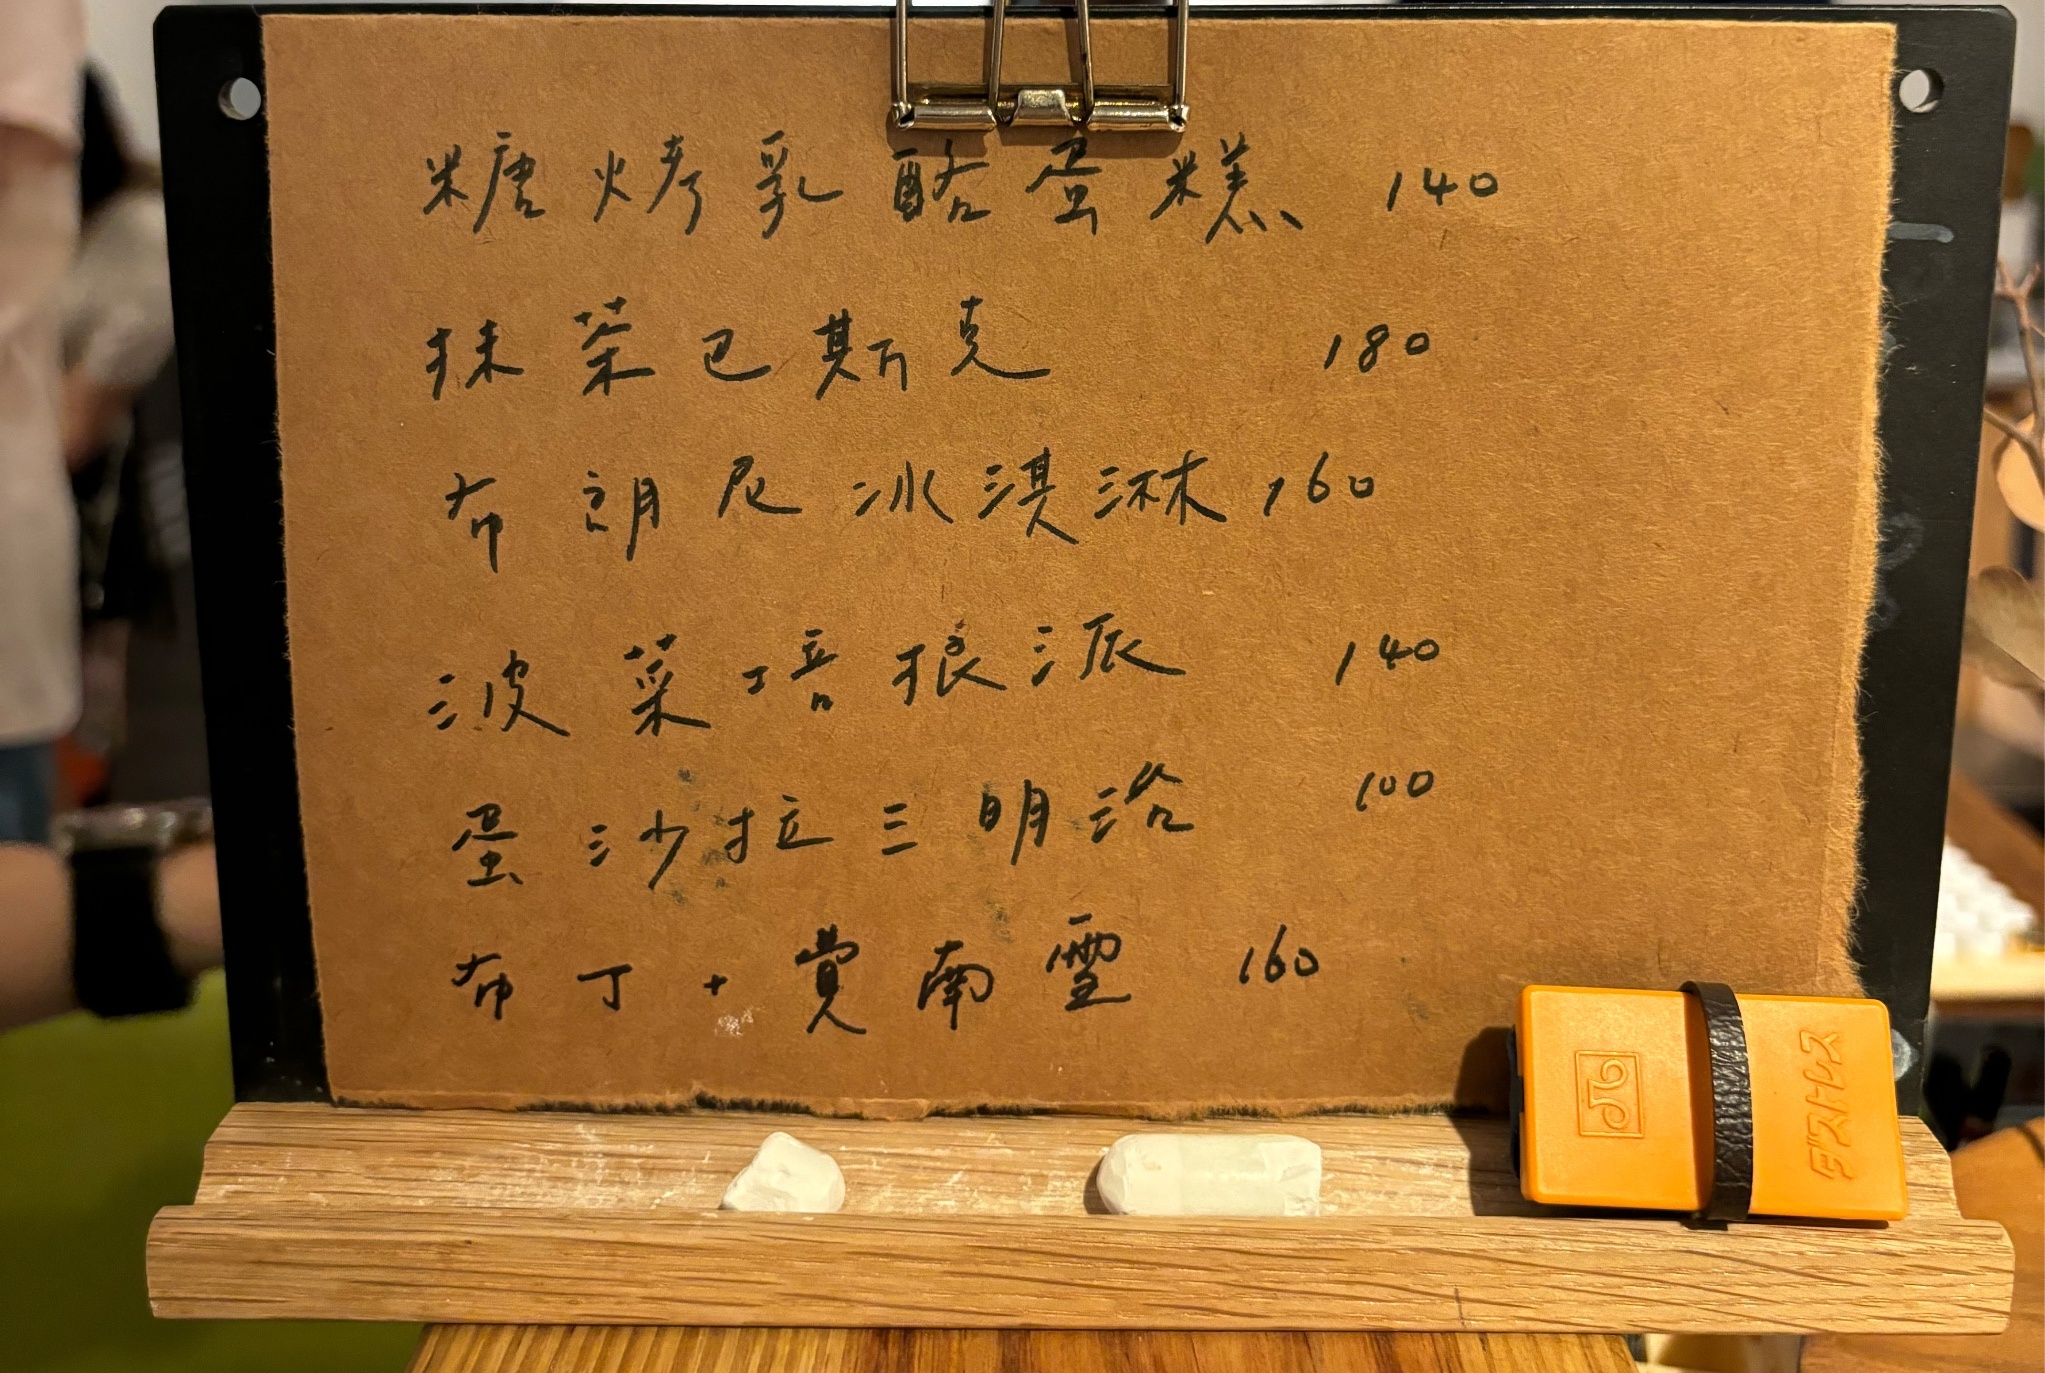 糖烤乳酪蛋糕 140
抹茶巴斯克 180
布朗尼冰淇淋 160
波菜培根派 140
蛋沙拉三明治 100
布丁+費南雪 160
ダストレス